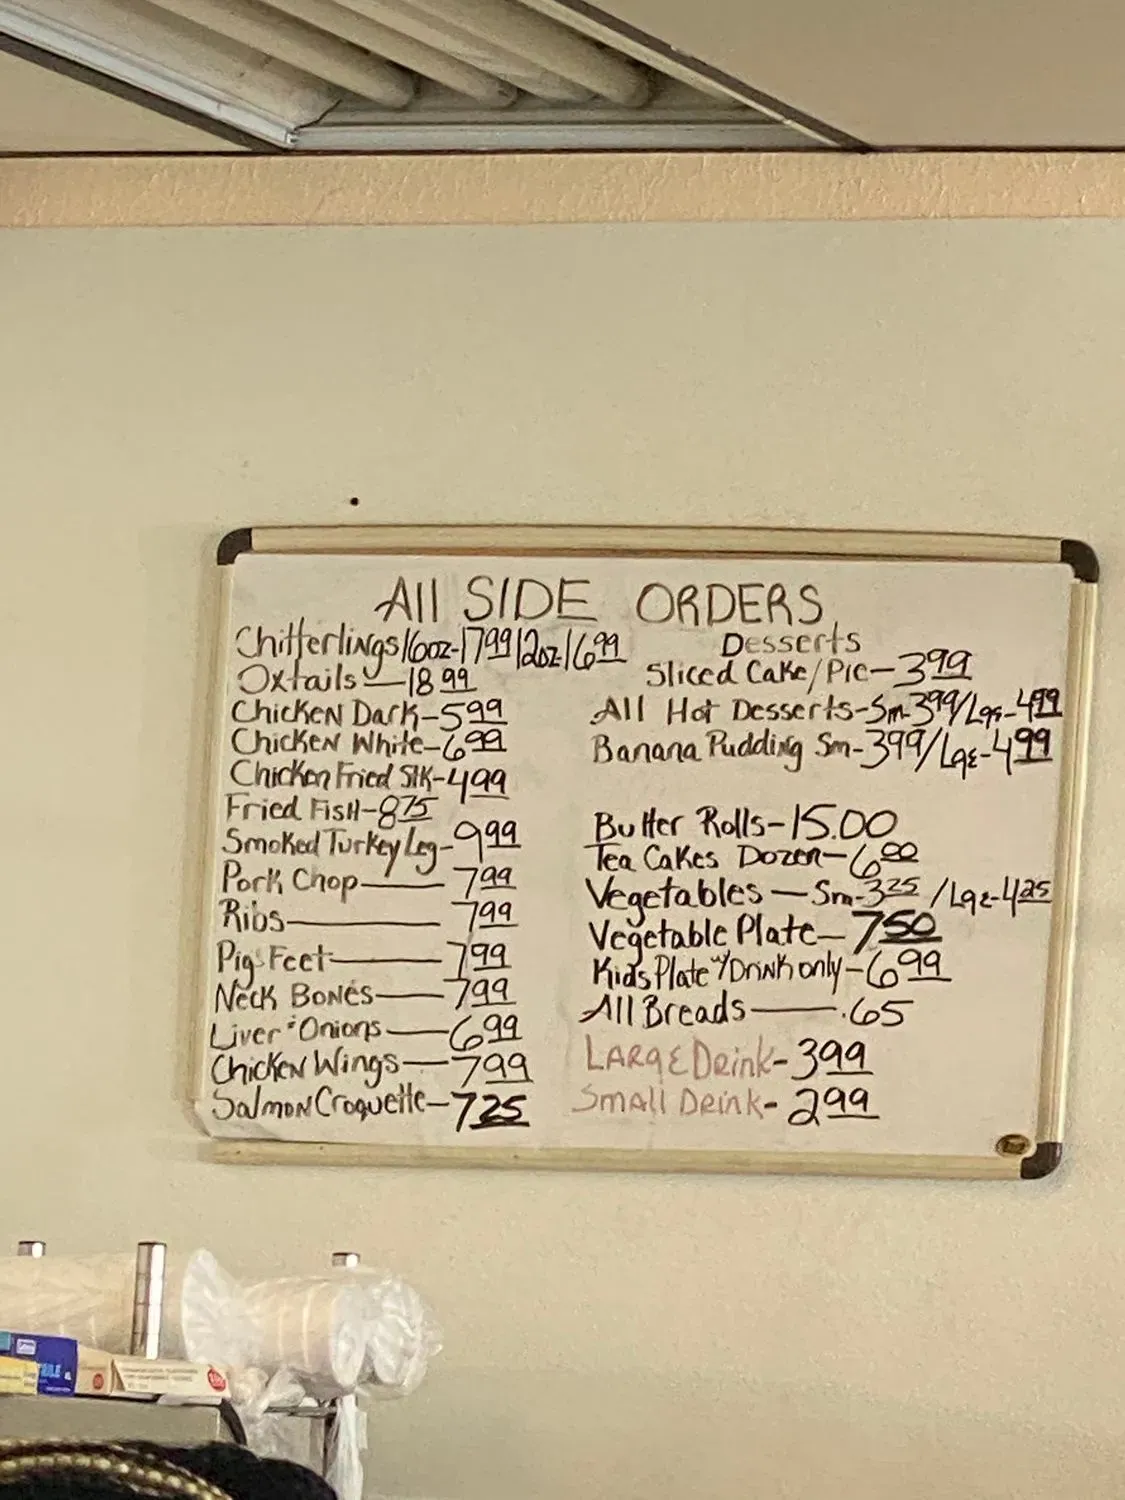 All SIDE ORDERS
Chitterlings 16oz-17.99 12oz-16.99
Oxtails—18.99
Chicken Dark-5.99
Chicken White-6.99
Chicken Fried Stk-4.99
Fried Fish-8.75
Smoked Turkey Leg-9.99
Pork Chop—7.99
Ribs—7.99
Pig Feet—7.99
Neck Bones—7.99
Liver & Onions—6.99
Chicken Wings—7.99
Salmon Croquette—7.25
Desserts
Sliced Cake/Pie—3.99
All Hot Desserts-Sm-3.99/Lge-4.99
Banana Pudding Sm-3.99/Lge-4.99
Butter Rolls-15.00
Tea Cakes Dozen-6.00
Vegetables—Sm-3.25/Lge-4.25
Vegetable Plate—7.50
Kids Plate w/Drink only-6.99
All Breads—.65
LARGE Drink-3.99
Small Drink-2.99